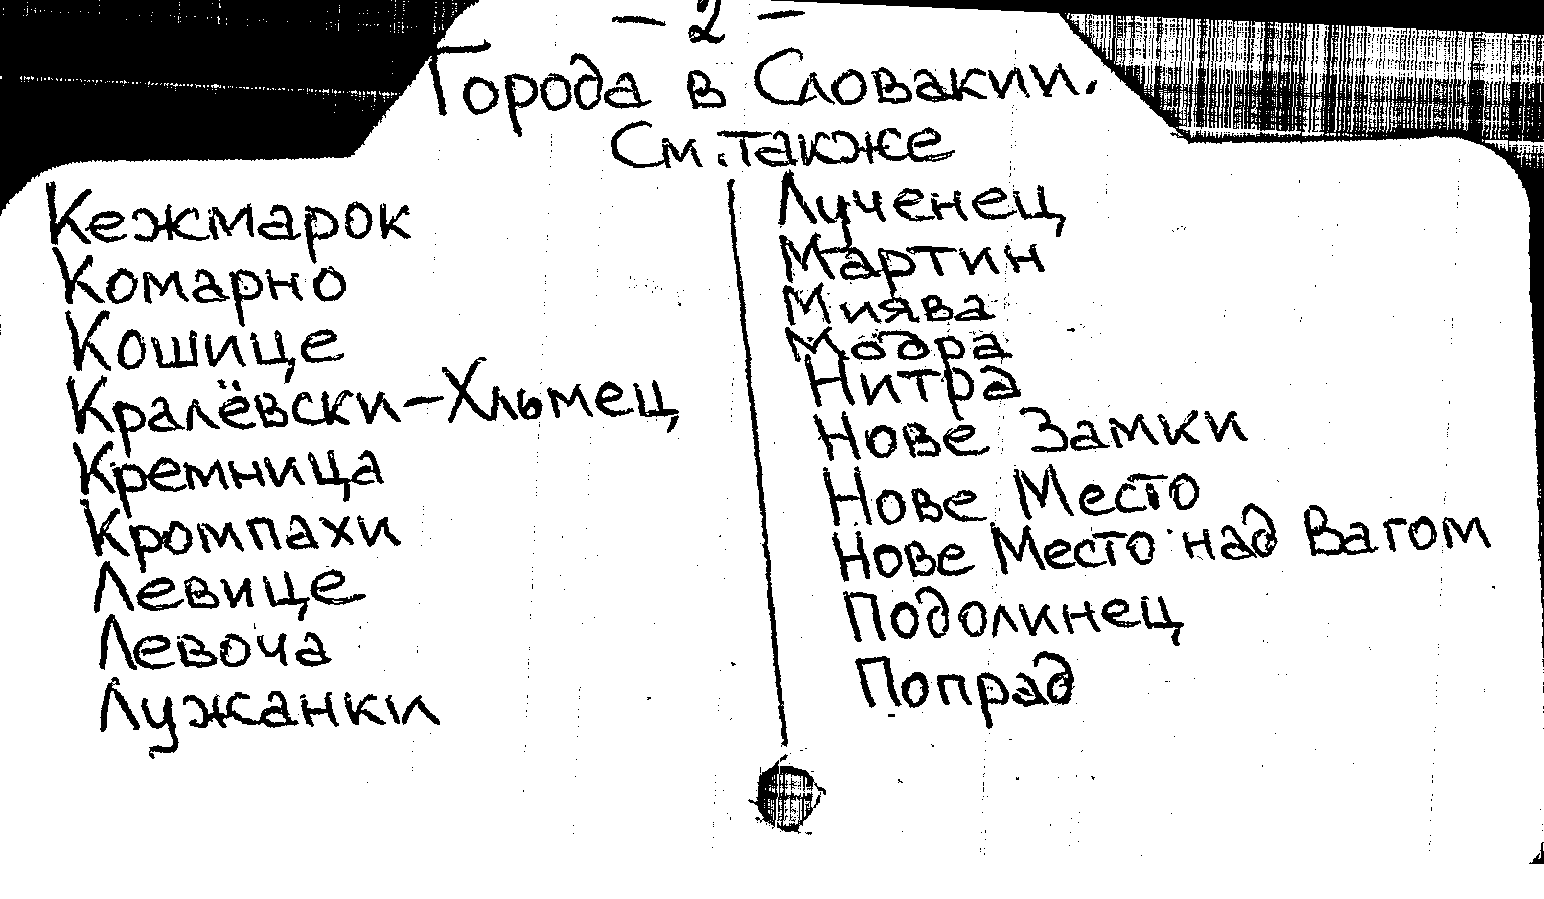 – 2 –
Города в Словакии.
См. также
Кежмарок
Комарно
Кошице
Кралёвски-Хльмец
Кремница
Кромпахи
Левице
Левоча
Лужанки
Лученец
Мартин
Миява
Модра
Нитра
Нове Замки
Нове Место
Нове Место над Вагом
Подолинец
Попрад